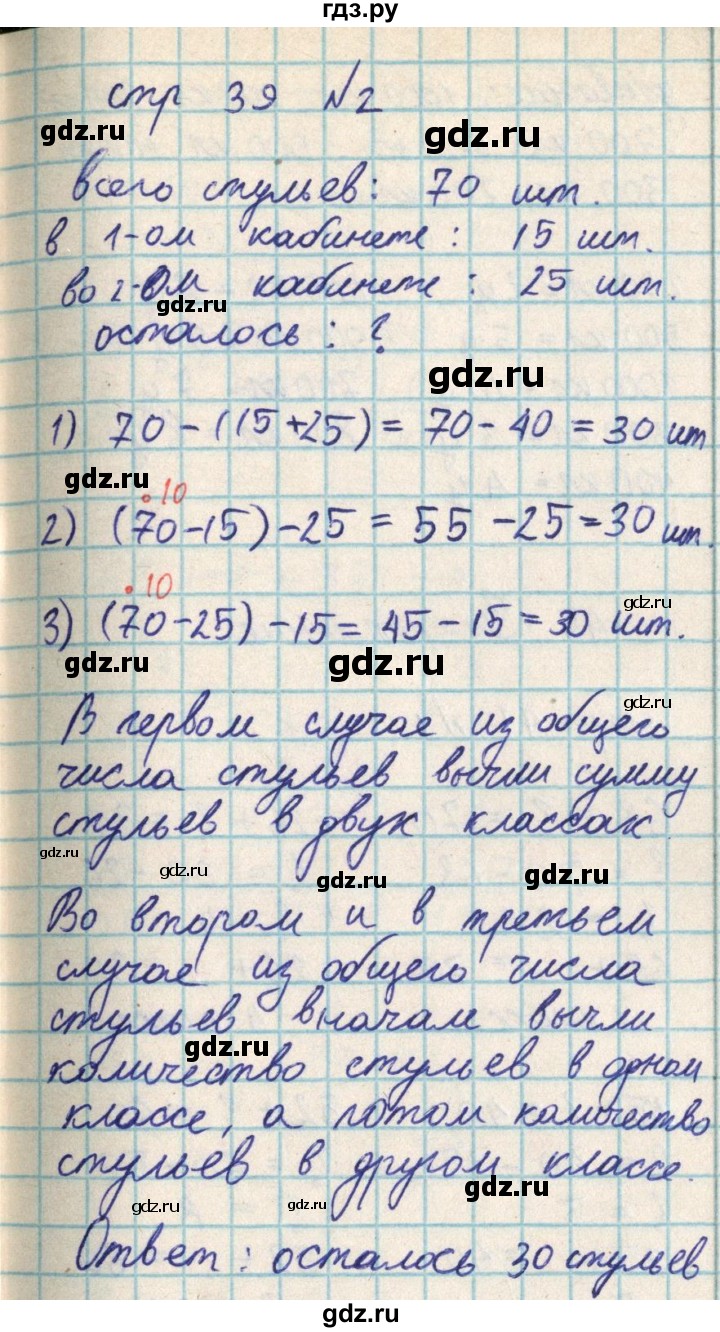 гдз.ру
стр 39 №2
gdz.ru
gdz.ru
всего стульев: 70 шт.
в 1-ом кабинете: 15 шт.
во 2-ом кабинете: 25 шт.
gdz.ru
осталось: ?
gdz.ru
1) 70-(15+25)=70-40=30 шт
gdz.ru
.10
2) (70-15)-25=55-25=30 шт.
.10
gdz.ru
3) (70-25)-15=45-15=30 шт.
gdz.ru
gdz.ru
В первом случае из общего
gdz.ru
числа стульев вычли сумму
стульев в двух классах
gdz.ru
gdz.ru
gdz.ru
gdz.ru
Во втором и в третьем
случае из общего числа
стульев вначале вычли
gdz.ru
количество стульев в одном
классе, а потом количество
стульев в другом классе.
gdz.ru
gdz.ru
gdz.ru
Ответ: осталось 30 стульев
gdz.ru